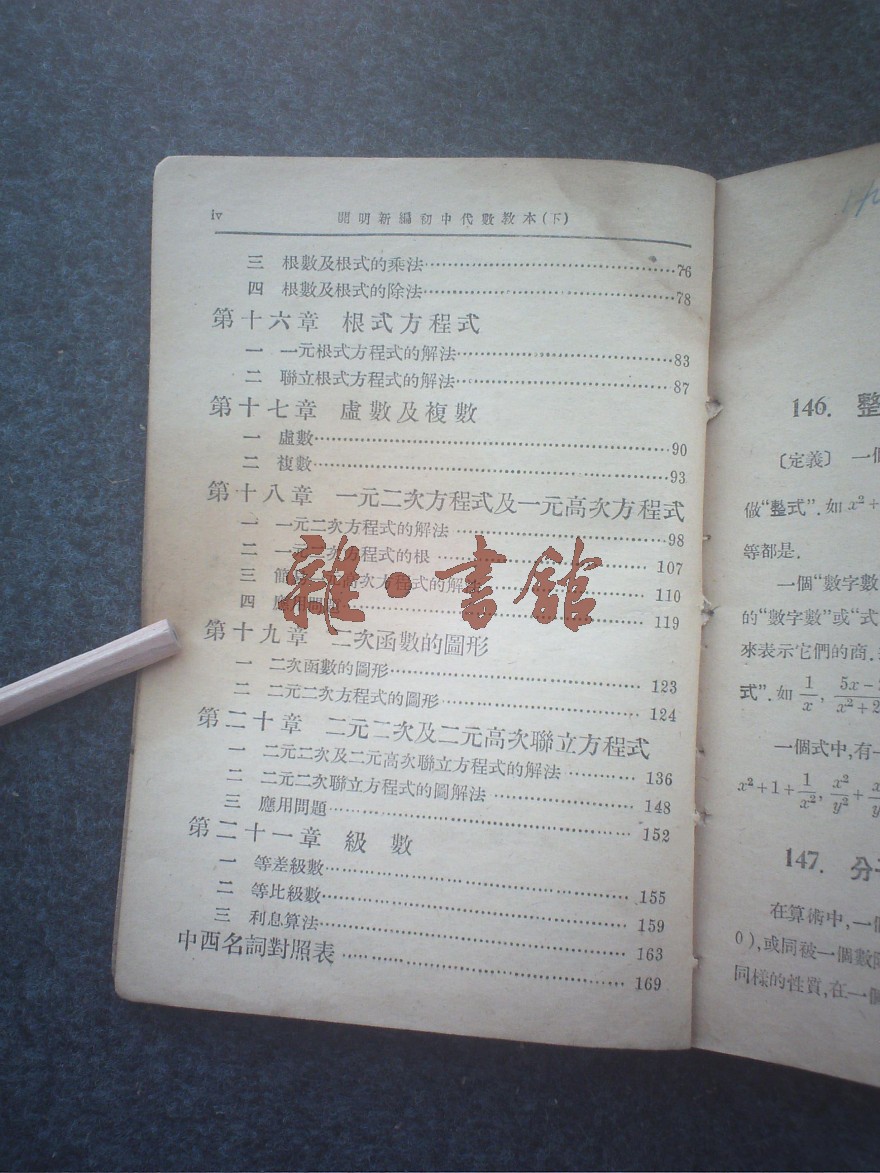 iv 開明新編初中代數教本(下)
三 根數及根式的乘法 76
四 根數及根式的除法 78
第十六章 根式方程式
一 一元根式方程式的解法 83
二 聯立根式方程式的解法 87
第十七章 虛數及複數
一 虛數 90
二 複數 93
第十八章 一元二次方程式及一元高次方程式
一 一元二次方程式的解法 98
二 一元二次方程式的根 107
三 高次方程式的解法 110
四 應用問題 119
第十九章 二次函數的圖形
一 二次函數的圖形 123
二 二元二次方程式的圖形 124
第二十章 二元二次及二元高次聯立方程式
一 二元二次及二元高次聯立方程式的解法 136
二 二元二次聯立方程式的圖解法 148
三 應用問題 152
第二十一章 級數
一 等差級數 155
二 等比級數 159
三 利息算法 163
中西名詞對照表 169
雜·書館
146. 整
〔定義〕 一個
做“整式”.如 x²+
等都是.
一個“數字數
的“數字數”或“式
來表示它們的商.
式”.如 1/x, 5x-
x²+2
一個式中,有一
x²+1+1/x², x²/y²+
147. 分子
在算術中,一個
0),或同被一個數除
同樣的性質,在一個